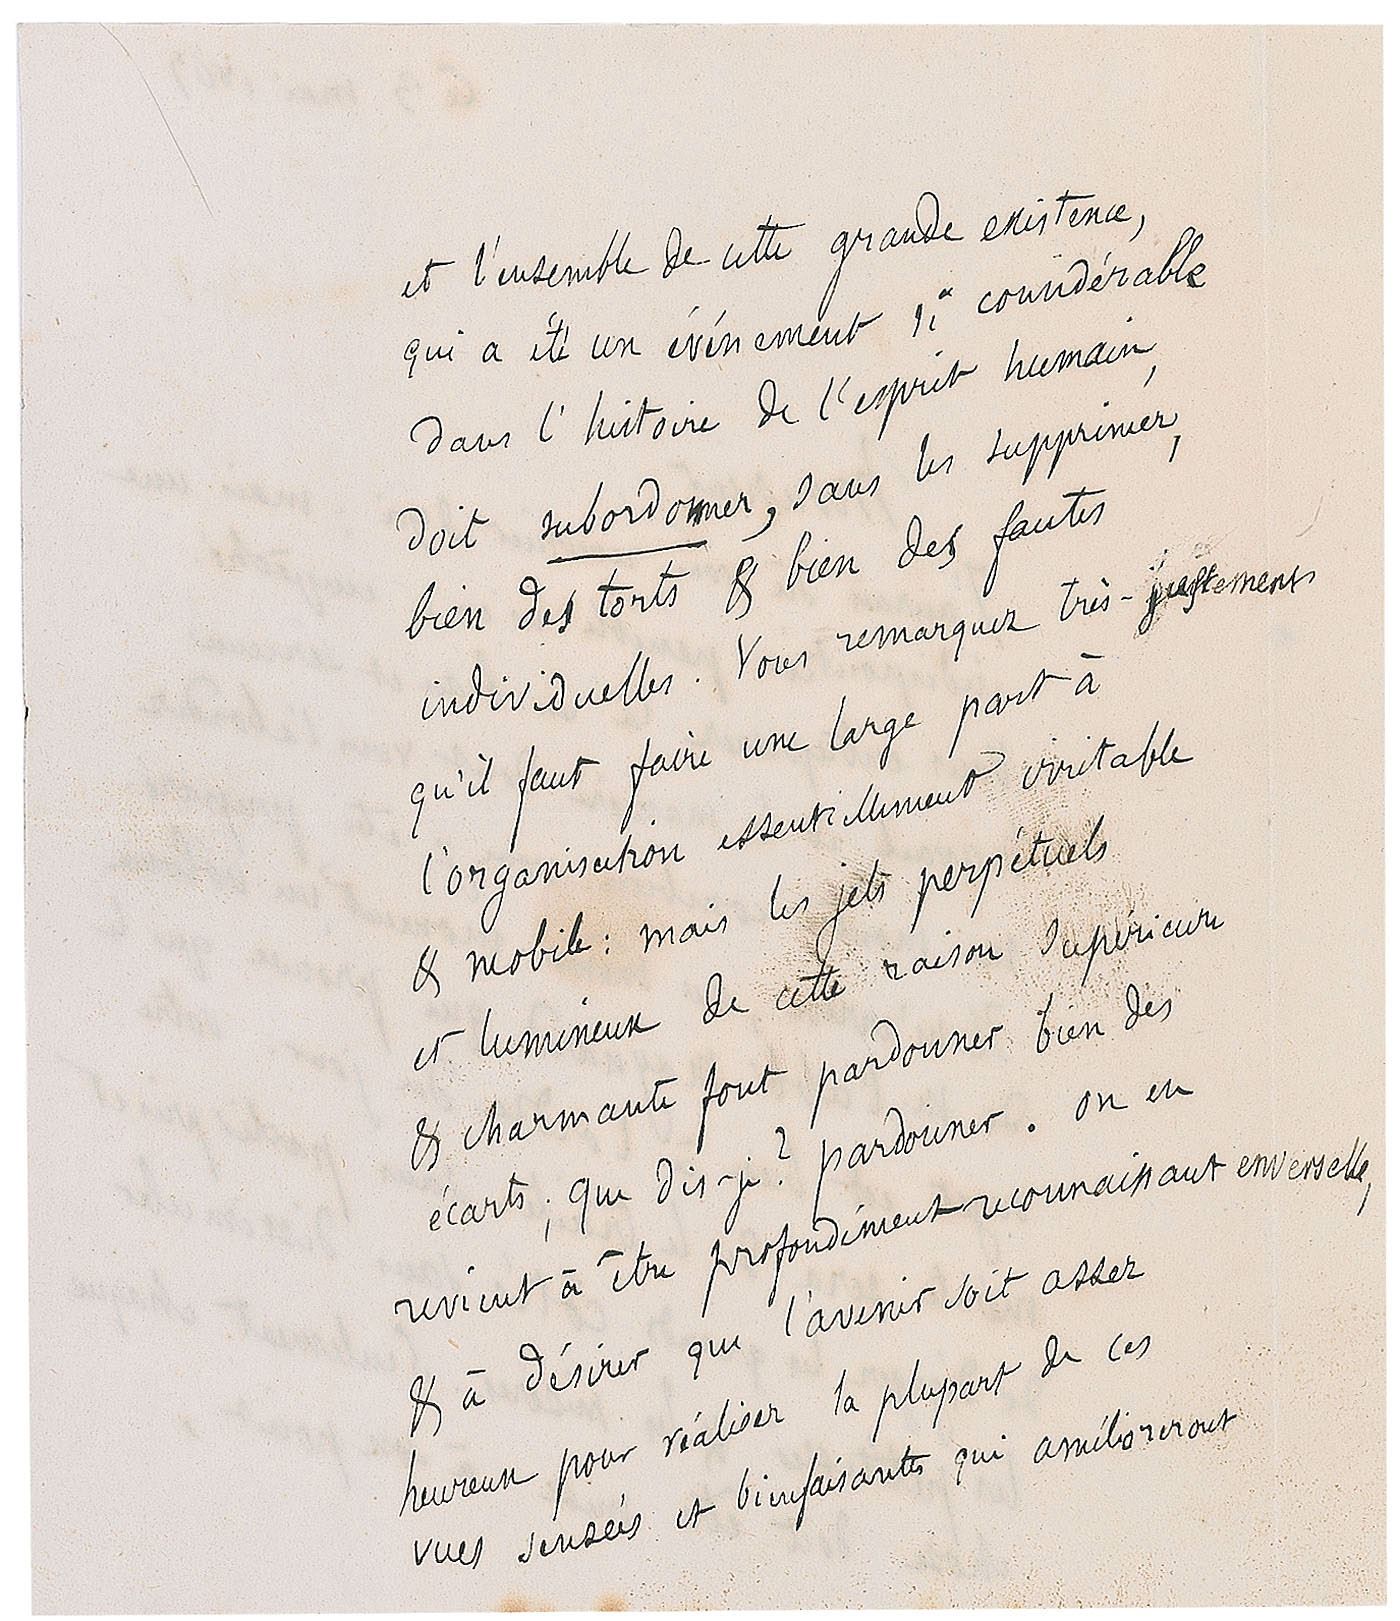 et l'ensemble de cette grande existence,
qui a été un événement si considérable
dans l'histoire de l'esprit humain,
doit subordonner, sans les supprimer,
bien des torts & bien des fautes
individuelles. Vous remarquez très-justement
qu'il faut faire une large part à
l'organisation essentiellement irritable
& mobile : mais les jets perpétuels
et lumineux de cette raison supérieure
& charmante font pardonner bien des
écarts ; que dis-je ? pardonner . on en
revient à être profondément reconnaissant envers elle,
& à désirer que l'avenir soit assez
heureux pour réaliser la plupart de ces
vues sensées et bienfaisantes qui amélioreront